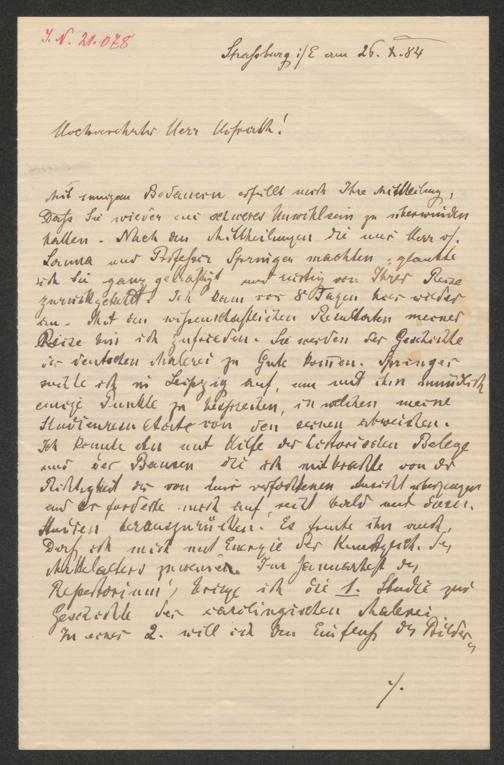 J. N. 21.078
Straßburg i/E am 26. X. 84
Hochverehrter Herr Hofrath!
Mit innigem Bedauern erfüllt mich Ihre Mittheilung,
Daß Sie wieder ein schweres Unwohlsein zu überwinden
hatten. Nach den Mittheilungen die mir Herr v.
und Professor Springer machten, glaubte
ich Sie ganz gekräftigt und rüstig von Ihrer Reise
zurückgekehrt. Ich kam vor 8 Tagen hier wieder
an. Mit den wissenschaftlichen Resultaten meiner
Reise bin ich zufrieden. Sie werden der Geschichte
der deutschen Malerei zu Gute kommen. Springer
suchte ich in Leipzig auf, um mit ihm mündlich
einige Punkte zu besprechen, in welchen meine
Studienresultate von den seinen abweichen.
Ich konnte ihn mit Hilfe der historischen Belege
und der Bausen die ich mitbrachte von der
Richtigkeit der von mir verfochtenen Ansicht überzeugen
und er forderte mich auf recht bald mit diesen
Studien herauszurücken. Es freute ihn auch,
Daß ich mich mit Energie der Kunstgesch. des
Mittelalters zuwende. Im Januarheft des
Repertoriums, bringe ich die 1. Studie zur
Geschichte der carolingischen Malerei
In einer 2. will ich den Einfluß des Bilder
./.